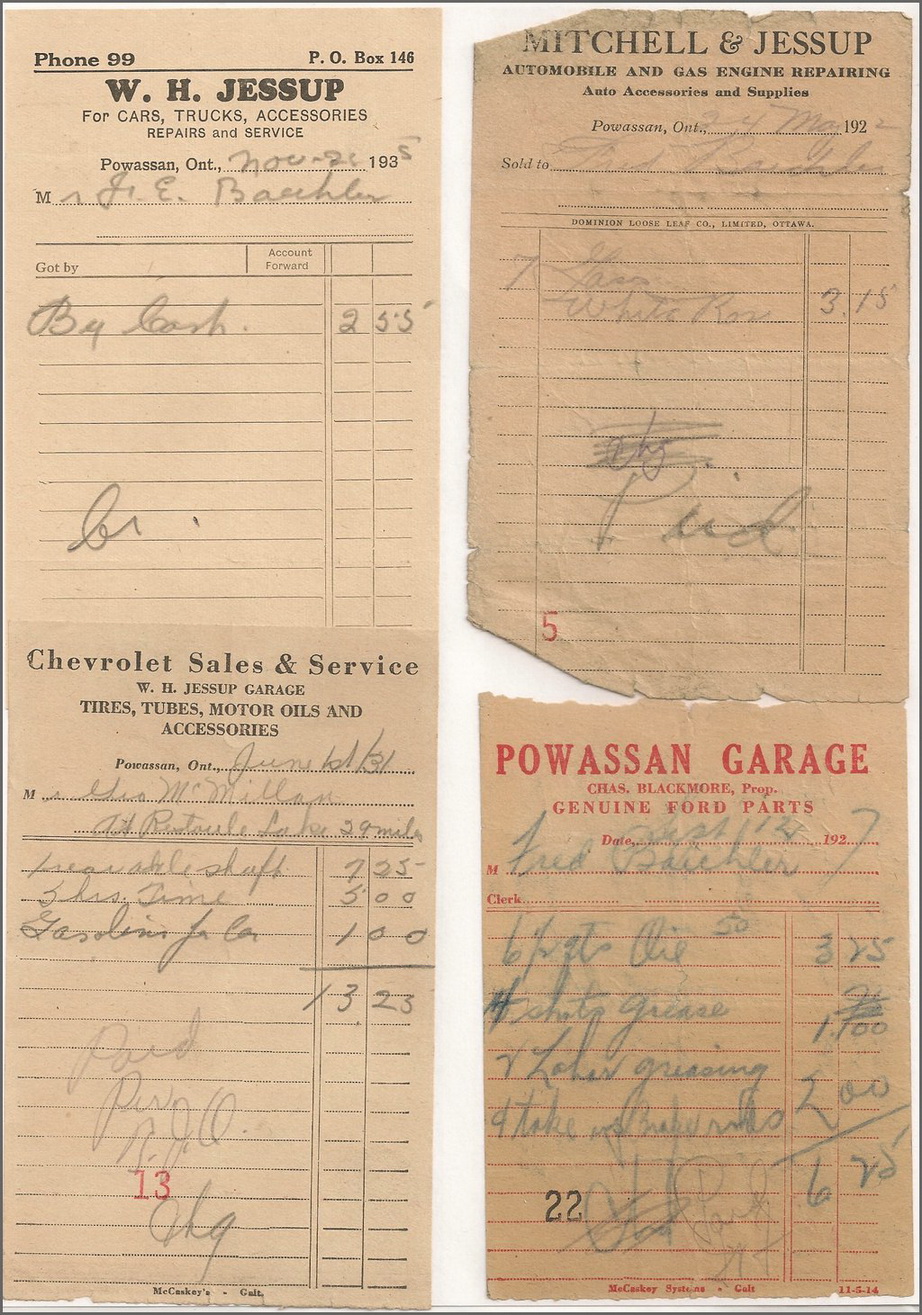 Phone 99 P. O. Box 146
W. H. JESSUP
For CARS, TRUCKS, ACCESSORIES
REPAIRS and SERVICE
Powassan, Ont., Nov-21 1935
M r F. E. Baechler
Got by Account Forward
By Cash. 2 55
Cr.
Chevrolet Sales & Service
W. H. JESSUP GARAGE
TIRES, TUBES, MOTOR OILS AND
ACCESSORIES
Powassan, Ont., June 1st/31
M r. Geo McMillan
At Restoule Lake 29 miles
shaft 7 25
5 hrs. Time 5 00
Gasoline for Car 1 00
13 25
Paid
Per
N.J.O.
13
Chg
McCaskey's - Galt.
MITCHELL & JESSUP
AUTOMOBILE AND GAS ENGINE REPAIRING
Auto Accessories and Supplies
Powassan, Ont., 24 May 1922
Sold to Fred
DOMINION LOOSE LEAF CO., LIMITED, OTTAWA.
7 Gass
White Ros 3.15
Chg
Paid
5
POWASSAN GARAGE
CHAS. BLACKMORE, Prop.
GENUINE FORD PARTS
Date, Sept 12 1927
M Fred Baechler
Clerk
6 1/2 qts Oil 50 3 25
4 shots grease 1.00
2 Labor greasing
& take up Brake rods 2 00
6 25
22
Paid
McCaskey Systems - Galt 11-5-14